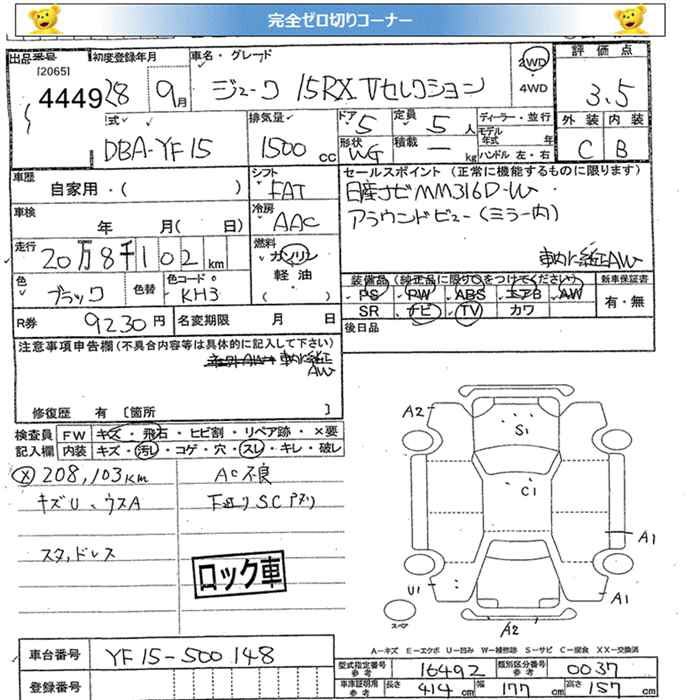 完全ゼロ切りコーナー
出品番号 初度登録年月 車名・グレード 2WD 評価点
[2065]
4449 28 9月 ジューク 15RX Vセレクション 4WD 3.5
型式 排気量 ドア 定員 ディーラー・並行 外装 内装
DBA-YF15 1500cc 5 5人 モデル年式 年
形状 積載 ハンドル 左・右 C B
WG ー kg
車歴 シフト セールスポイント(正常に機能するものに限ります)
自家用・( ) FAT 日産ナビMM316D-W
車検 年 月( 日) 冷房 AAC アラウンドビュー(ミラー内)
走行 燃料
20万8千102km ガソリン 車内に純正AW
軽油
( )
色 ブラック 色替 色コード KH3
装備品(純正品に限り○をつけてください) 新車保証書
PS PW ABS エアB AW 有・無
SR ナビ TV カワ
R券 9230円 名変期限 月 日 後日品
注意事項申告欄(不具合内容等は具体的に記入して下さい)
車内に純正AW
修復歴 有 [箇所 ]
検査員 FW キズ・飛石・ヒビ割・リペア跡・×要
記入欄 内装 キズ・汚レ・コゲ・穴・スレ・キレ・破レ
208,103km AC不良
キズU、ウスA 下廻りSCアリ
スタッドレス
ロック車
A2
S1
C1
A1
U1 A1
スペア A2
A-キズ E-エクボ U-凹み W-補修跡 S-サビ C-腐食 XX-交換済
車台番号 YF15-500148
登録番号
型式指定番号参考 16492 類別区分番号参考 0037
車庫証明用参考 長さ 414cm 幅 177cm 高さ 157cm